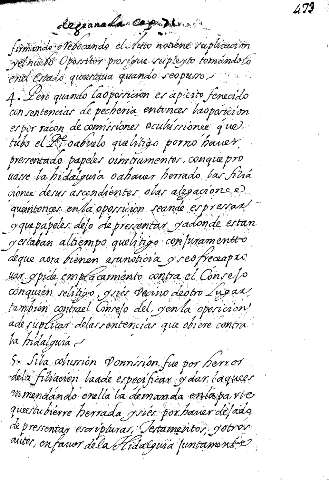 473
de granada cap.
firmando o rebocando el Auto no tiene suplicacion
y el nuebo Opositor prosigue su pleyto tomandolo
en el estado que estava quando se opuso.
4. Pero quando la oposicion es a pleito fenecido
con sentencias de pecheria entonces la oposicion
es por raçon de omissiones o colussiones que
tubo el P.e o abuelo que litigo por no haver
presentado papeles o instrumentos, con que pro
vasse la hidalguia o a haver herrado las filia
ciones de sus ascendientes o las alegaciones
que entonces en la oposicion se an de expressar
y que papeles dejo de presentar, y adonde estan
y estaban al tiempo que litigo con juramento
de que aora bienen a su noticia y se ofrece a pro
var, y pide emplaçamiento contra el Consejo
con quien se litigo, y si es vecino de otro Lugar
tambien contra el Consejo del, y en la oposicion
a de suplicar de las sentencias que obiere contra
la hidalguia.
5. Si la colussion o omission, fue por herror
de la filiacion la a de especificar, y dar
enmendando en ella la demanda en la parte
que estubiere herrada, y si es por haver dejado
de presentar escripturas, Testamentos, y otros
autos, en favor de la Hidalguia juntamente